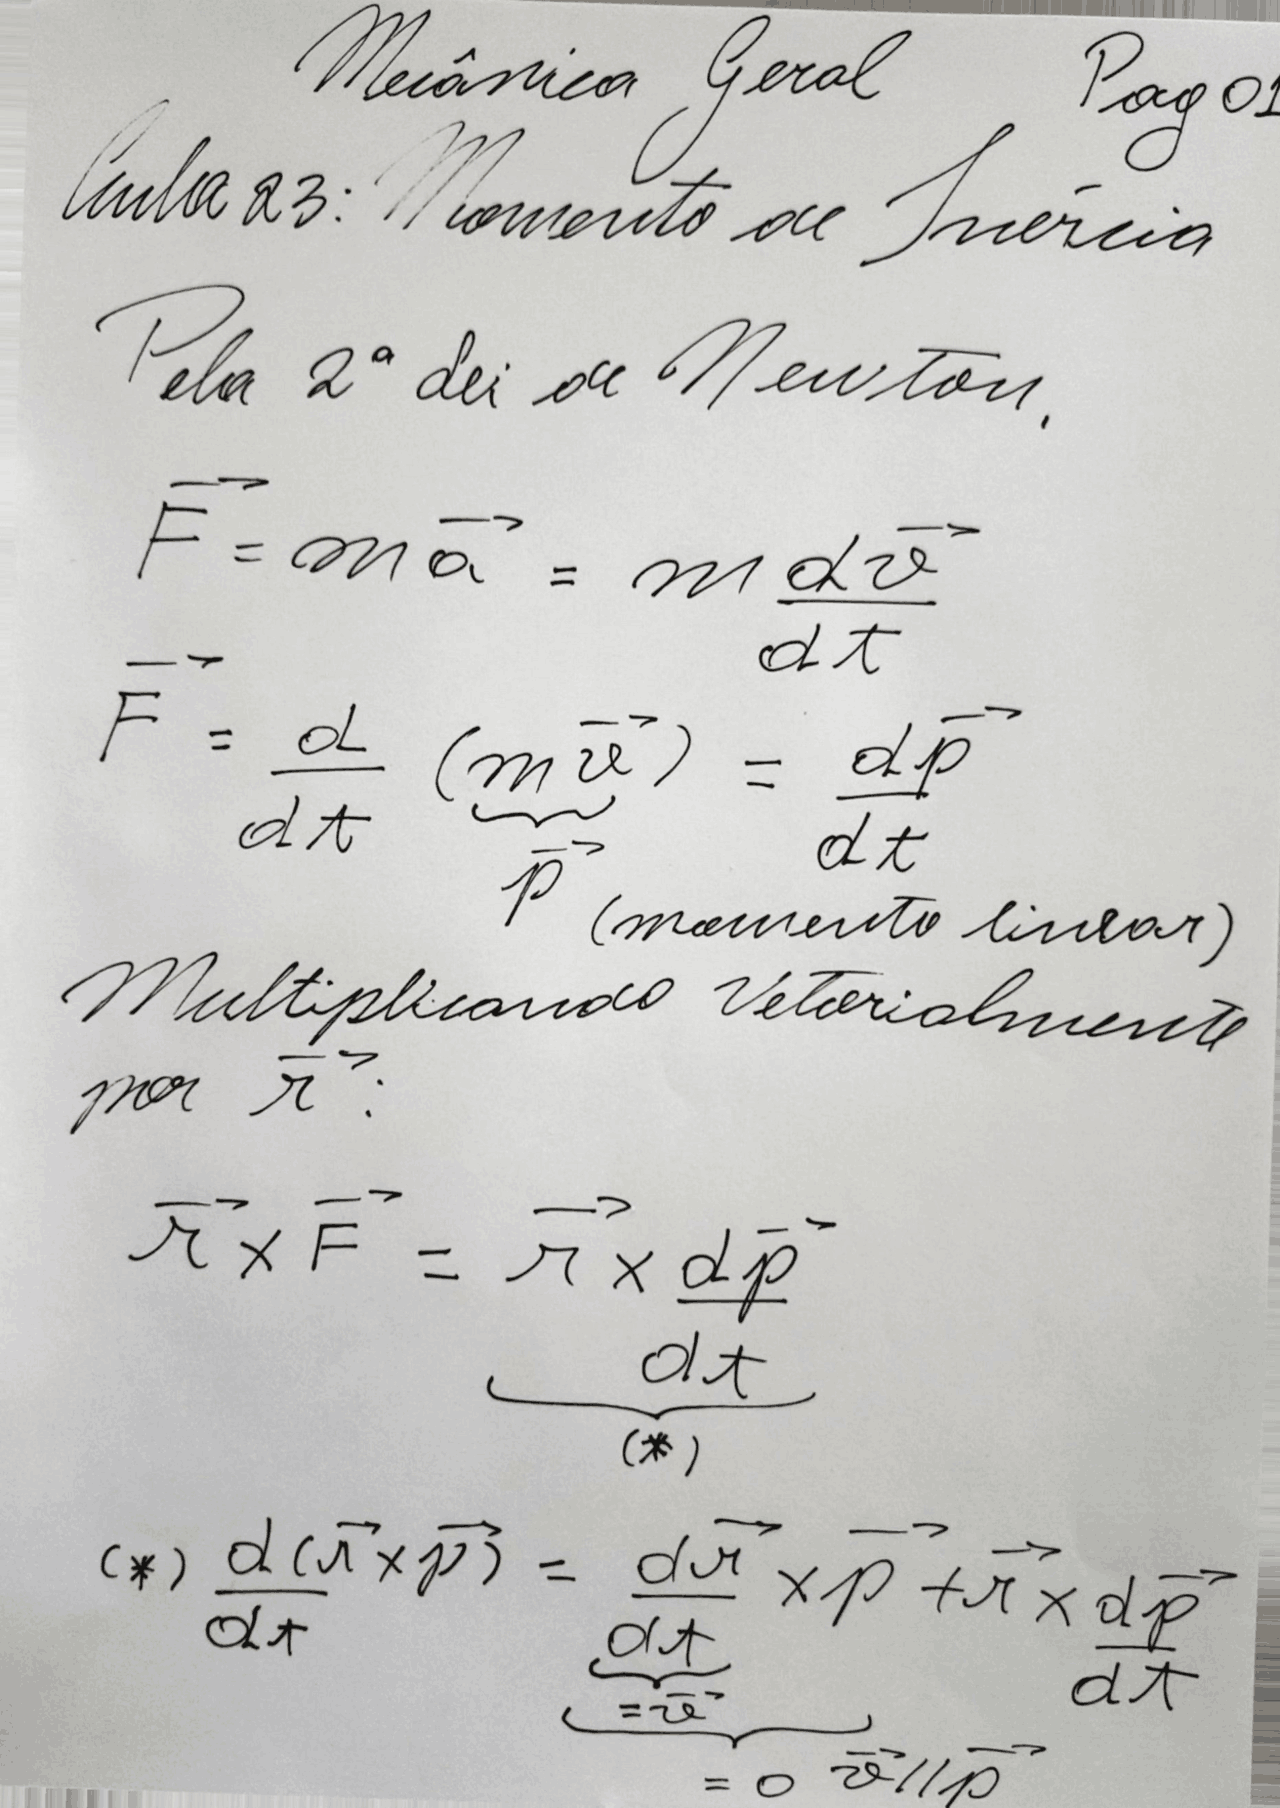 Mecânica Geral Pag 01
Aula 23: Momento de Inércia
Pela 2ª Lei de Newton,
$\vec{F} = m\vec{a} = m\frac{d\vec{v}}{dt}$
$\vec{F} = \frac{d}{dt}(\underbrace{m\vec{v}}_{\vec{p}}) = \frac{d\vec{p}}{dt}$
(momento linear)
Multiplicando Vetorialmente
por $\vec{r}$:
$\vec{r} \times \vec{F} = \underbrace{\vec{r} \times \frac{d\vec{p}}{dt}}_{(*)}$
$(*) \frac{d(\vec{r} \times \vec{p})}{dt} = \underbrace{\underbrace{\frac{d\vec{r}}{dt}}_{=\vec{v}} \times \vec{p}}_{=0 \ \vec{v} // \vec{p}} + \vec{r} \times \frac{d\vec{p}}{dt}$